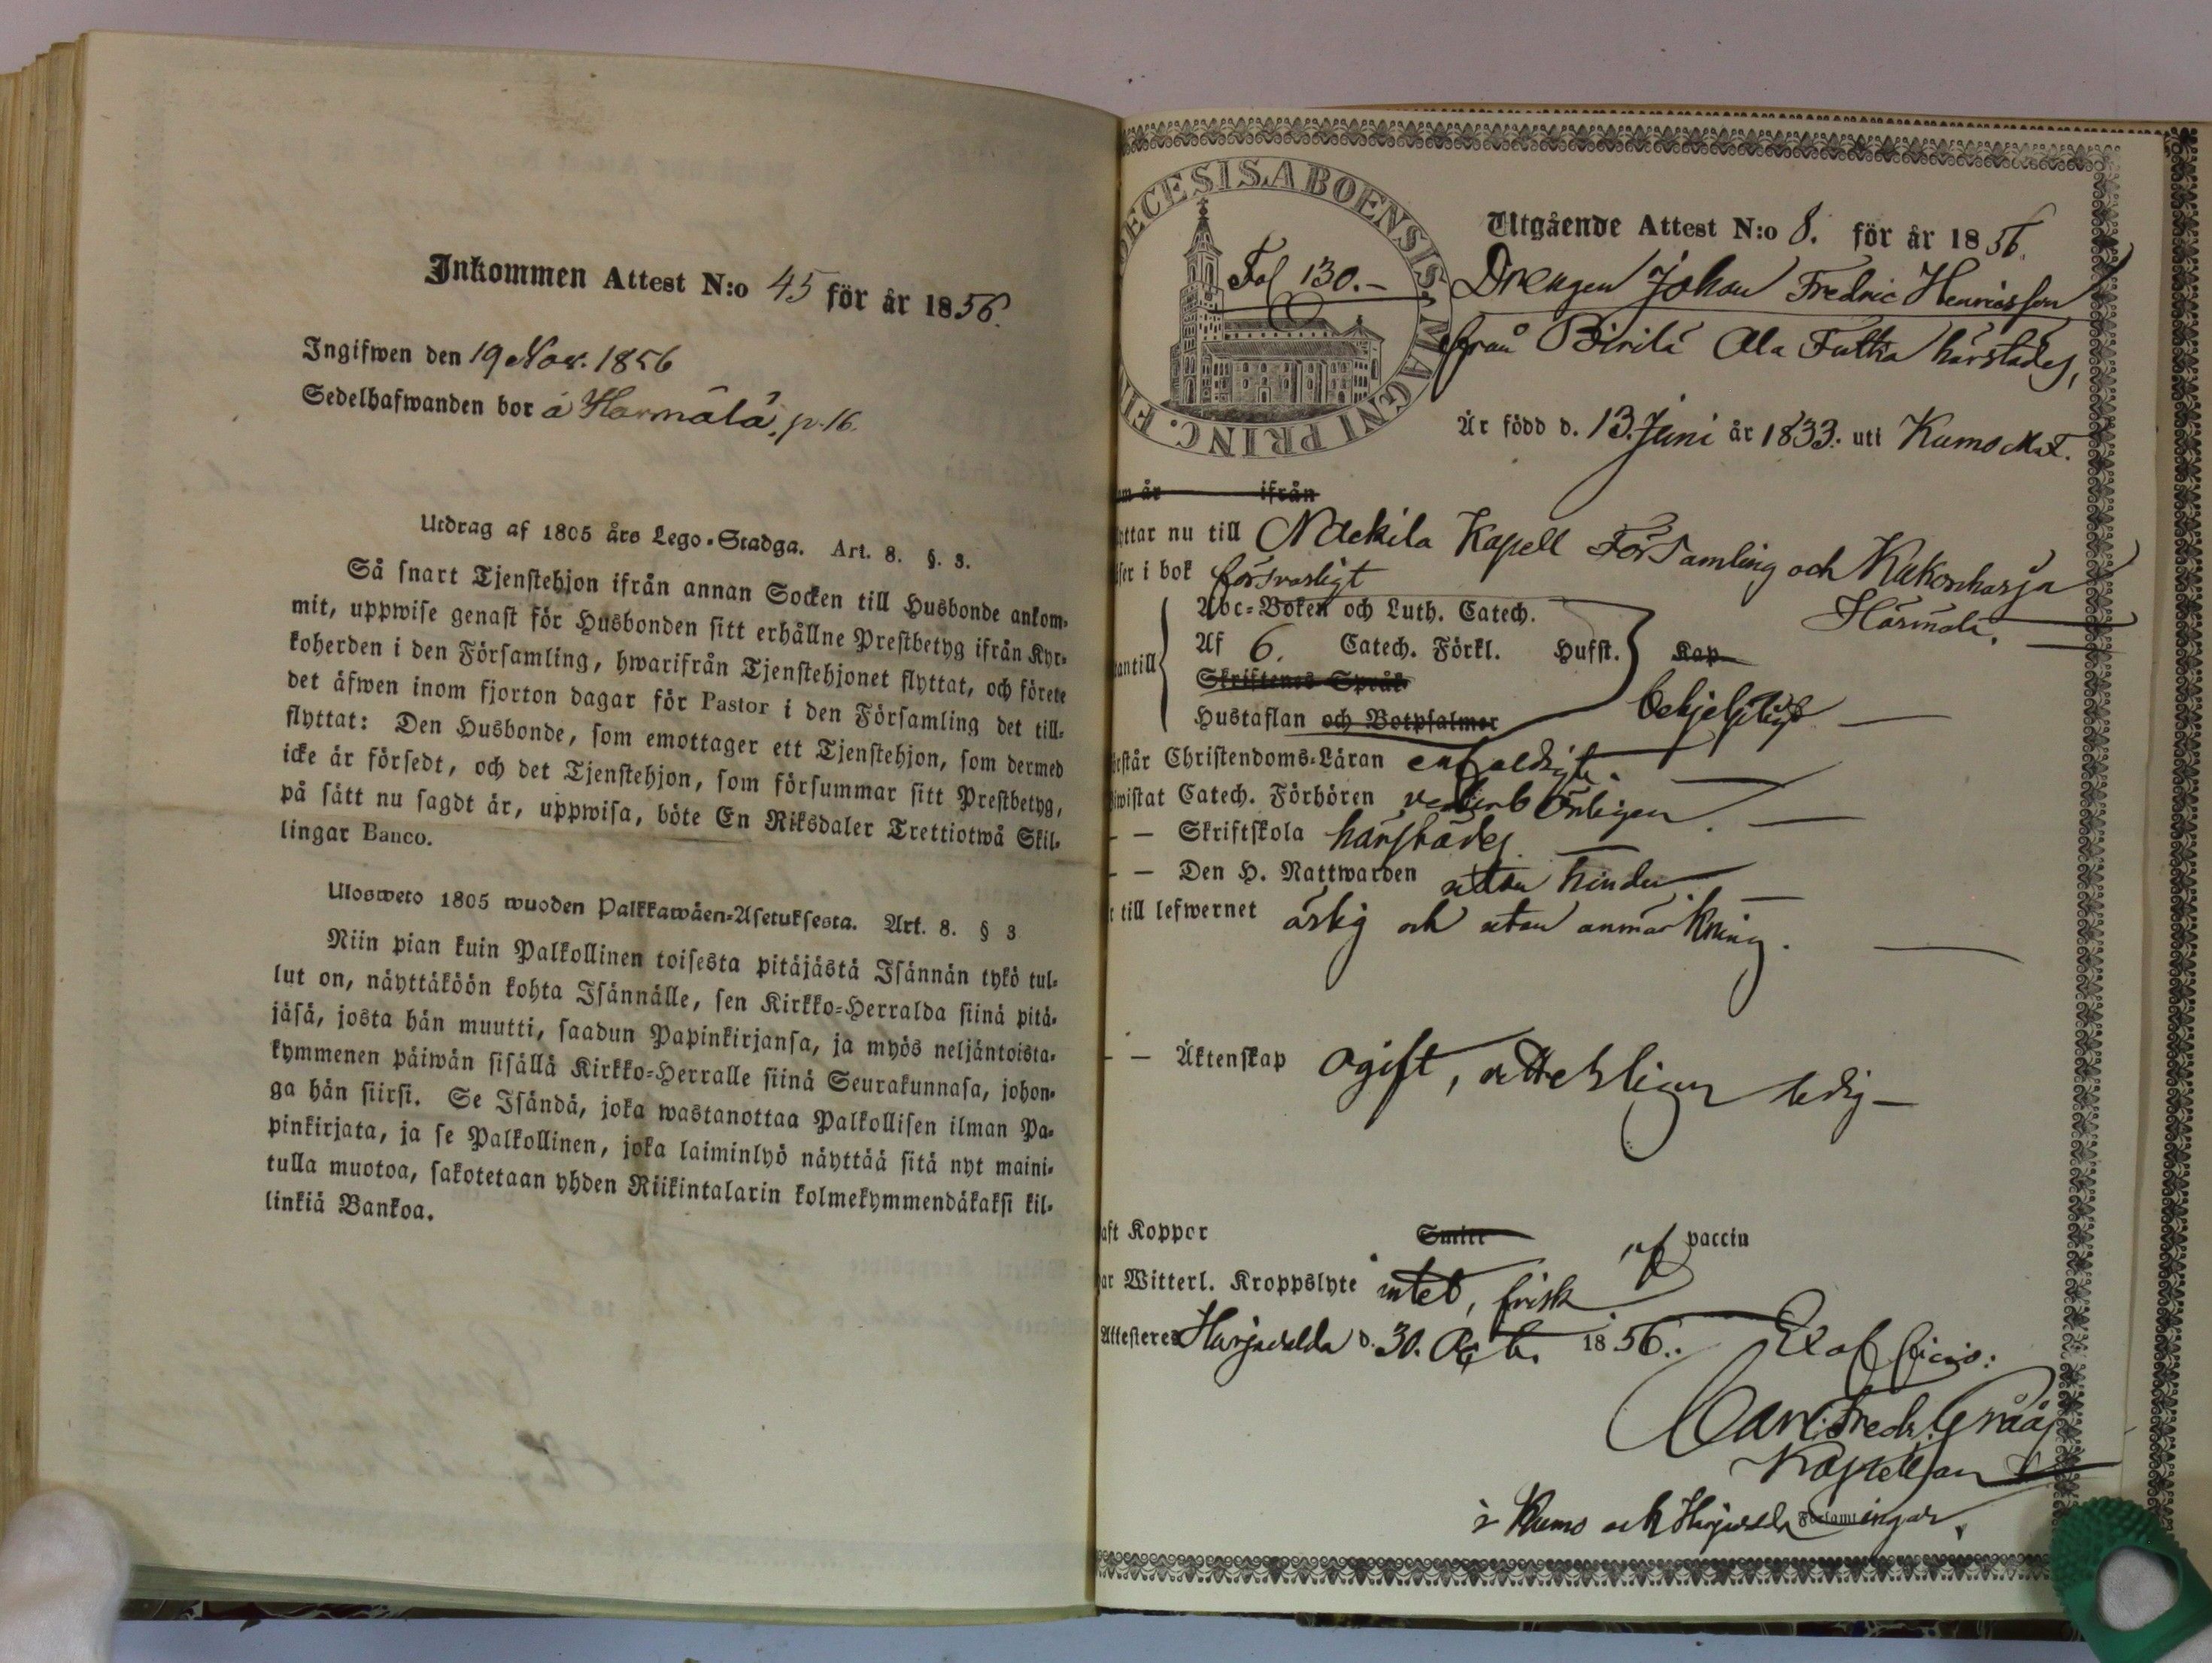 Inkommen Attest N:o 45 för år 1856.
Ingifwen den 19 Nov. 1856
Sedelhafwanden bor å Harmälä, p. 16.
Utdrag af 1805 års Lego-Stadga. Art. 8. §. 3.
Så snart Tjenstehjon ifrån annan Socken till Husbonde ankom-
mit, uppwise genast för Husbonden sitt erhållne Prestbetyg ifrån Kyr-
koherden i den Församling, hwarifrån Tjenstehjonet flyttat, och förete
det äfwen inom fjorton dagar för Pastor i den Församling det till-
flyttat: Den Husbonde, som emottager ett Tjenstehjon, som dermed
icke är försedt, och det Tjenstehjon, som försummar sitt Prestbetyg,
på sätt nu sagdt är, uppwisa, böte En Riksdaler Trettiotwå Skil-
lingar Banco.
Ulosweto 1805 wuoden Palkkawäen-Asetuksesta. Art. 8. § 3
Niin pian kuin Palkollinen toisesta pitäjästä Isännän tykö tul-
lut on, näyttäköön kohta Isännälle, sen Kirkko-Herralda siinä pitä-
jäsä, josta hän muutti, saadun Papinkirjansa, ja myös neljäntoista-
kymmenen päiwän sisällä Kirkko-Herralle siinä Seurakunnasa, johon-
ga hän siirsi. Se Isändä, joka wastanottaa Palkollisen ilman Pa-
pinkirjata, ja se Palkollinen, joka laiminlyö näyttää sitä nyt maini-
tulla muotoa, sakotetaan yhden Riikintalarin kolmekymmendäkaksi kil-
linkiä Bankoa.
DECESIS ABOENSIS MAGNI PRINC. FIN
Fol 130.-
Utgående Attest N:o 8. för år 1856.
Drengen Johan Fredric Henricsson
från Birilä Ala Futtia härstädes,
Är född d. 13. Juni år 1833. uti Kumo Mf.
om år ifrån
yttar nu till Nackila Kapell Församling och Kukonharja
Härmälä.
ser i bok försvarligt
Abc-Boken och Luth. Catech.
antill Af 6. Catech. Förkl. Hufst. Kap
Skriftenes Språk
Hustaflan och Botpsalmer behjelpligt
rstår Christendoms-Läran enfaldigt.
iwistat Catech. Förhören vederbörligen.
- - Skriftskola härstädes.
- - Den H. Nattwarden utan hinder
t till lefwernet ärlig och utan anmärkning.
- - Äktenskap ogift, ledig
aft Koppor Smitt af vaccin
ar Witterl. Kroppslyte intet, frisk
Attesteres Harjavalda d. 30. Octb. 1856. Ex officio:
Carl Fredr. Gråå
Kapellan
i Kumo och Harjavalda Församlingar.